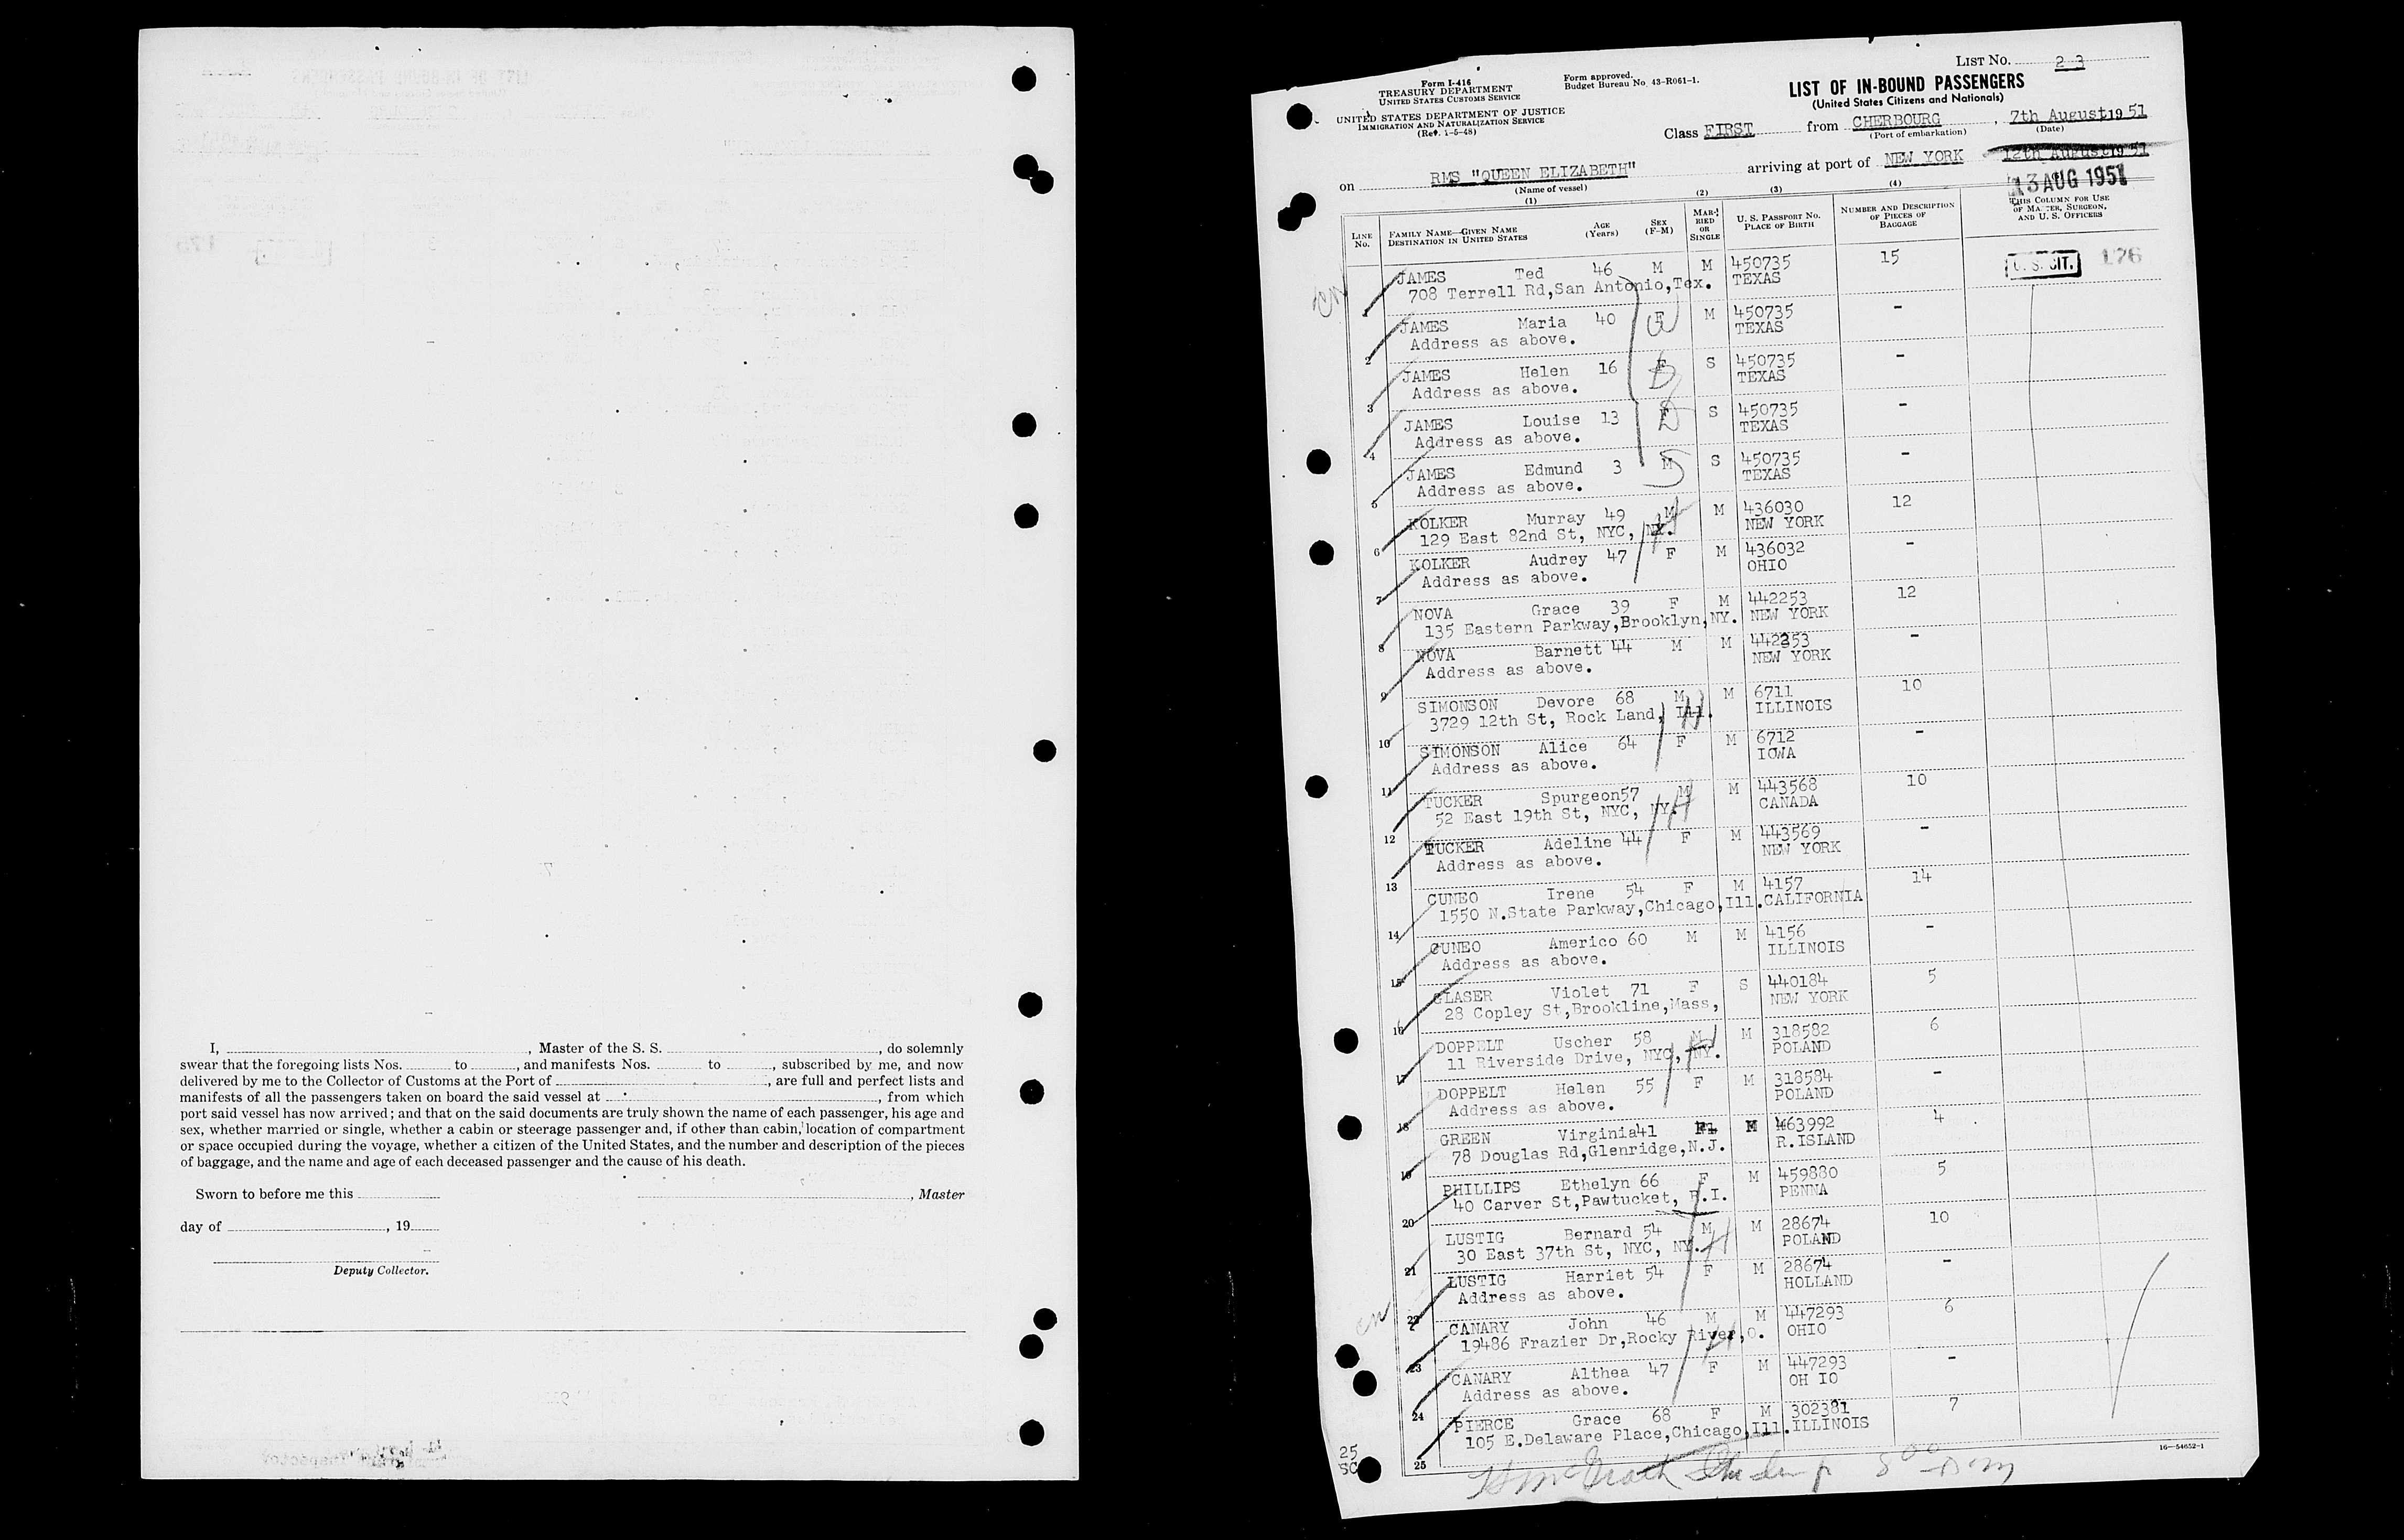 I, , Master of the S. S. , do solemnly
swear that the foregoing lists Nos. to , and manifests Nos. to , subscribed by me, and now
delivered by me to the Collector of Customs at the Port of , are full and perfect lists and
manifests of all the passengers taken on board the said vessel at , from which
port said vessel has now arrived; and that on the said documents are truly shown the name of each passenger, his age and
sex, whether married or single, whether a cabin or steerage passenger and, if other than cabin, location of compartment
or space occupied during the voyage, whether a citizen of the United States, and the number and description of the pieces
of baggage, and the name and age of each deceased passenger and the cause of his death.
Sworn to before me this , Master
day of , 19
Deputy Collector.
LIST No. 23
Form I-416
TREASURY DEPARTMENT
UNITED STATES CUSTOMS SERVICE
UNITED STATES DEPARTMENT OF JUSTICE
IMMIGRATION AND NATURALIZATION SERVICE
(Rev. 1-5-48)
Form approved.
Budget Bureau No. 43-R061-1.
LIST OF IN-BOUND PASSENGERS
(United States Citizens and Nationals)
Class FIRST from CHERBOURG , 7th August 1951
(Port of embarkation) (Date)
on RMS "QUEEN ELIZABETH" arriving at port of NEW YORK 12th August 1951
(Name of vessel)
13 AUG 1951
(1) (2) (3) (4)
LINE No. FAMILY NAME—GIVEN NAME DESTINATION IN UNITED STATES AGE (Years) SEX (F-M) MARRIED OR SINGLE U. S. PASSPORT No. PLACE OF BIRTH NUMBER AND DESCRIPTION OF PIECES OF BAGGAGE THIS COLUMN FOR USE OF MASTER, SURGEON, AND U. S. OFFICERS
JAMES Ted 46 M M 450735 15 U. S. CIT. 176
1 708 Terrell Rd,San Antonio,Tex. TEXAS
JAMES Maria 40 F M 450735 -
2 Address as above. TEXAS
JAMES Helen 16 F S 450735 -
3 Address as above. TEXAS
JAMES Louise 13 F S 450735 -
4 Address as above. TEXAS
JAMES Edmund 3 M S 450735 -
5 Address as above. TEXAS
KOLKER Murray 49 M M 436030 12
6 129 East 82nd St, NYC, NY. NEW YORK
KOLKER Audrey 47 F M 436032 -
7 Address as above. OHIO
NOVA Grace 39 F M 442253 12
8 135 Eastern Parkway,Brooklyn,NY. NEW YORK
NOVA Barnett 44 M M 442253 -
9 Address as above. NEW YORK
SIMONSON Devore 68 M M 6711 10
10 3729 12th St, Rock Land, Ill. ILLINOIS
SIMONSON Alice 64 F M 6712 -
11 Address as above. IOWA
TUCKER Spurgeon57 M M 443568 10
12 52 East 19th St, NYC, NY. CANADA
TUCKER Adeline 44 F M 443569 -
13 Address as above. NEW YORK
CUNEO Irene 54 F M 4157 14
14 1550 N.State Parkway,Chicago,Ill. CALIFORNIA
CUNEO Americo 60 M M 4156 -
15 Address as above. ILLINOIS
GLASER Violet 71 F S 440184 5
16 28 Copley St,Brookline,Mass, NEW YORK
DOPPELT Uscher 58 M M 318582 6
17 11 Riverside Drive, NYC, NY. POLAND
DOPPELT Helen 55 F M 318584 -
18 Address as above. POLAND
GREEN Virginia41 M 463992 4
19 78 Douglas Rd,Glenridge,N.J. R.ISLAND
PHILLIPS Ethelyn 66 F M 459880 5
20 40 Carver St,Pawtucket, R.I. PENNA
LUSTIG Bernard 54 M M 28674 10
21 30 East 37th St, NYC, NY. POLAND
LUSTIG Harriet 54 F M 28674 -
22 Address as above. HOLLAND
CANARY John 46 M M 447293 6
23 19486 Frazier Dr,Rocky River,O. OHIO
CANARY Althea 47 F M 447293 -
24 Address as above. OH IO
PIERCE Grace 68 F M 302381 7
25 105 E.Delaware Place,Chicago,Ill. ILLINOIS
25
SC
16—54652-1